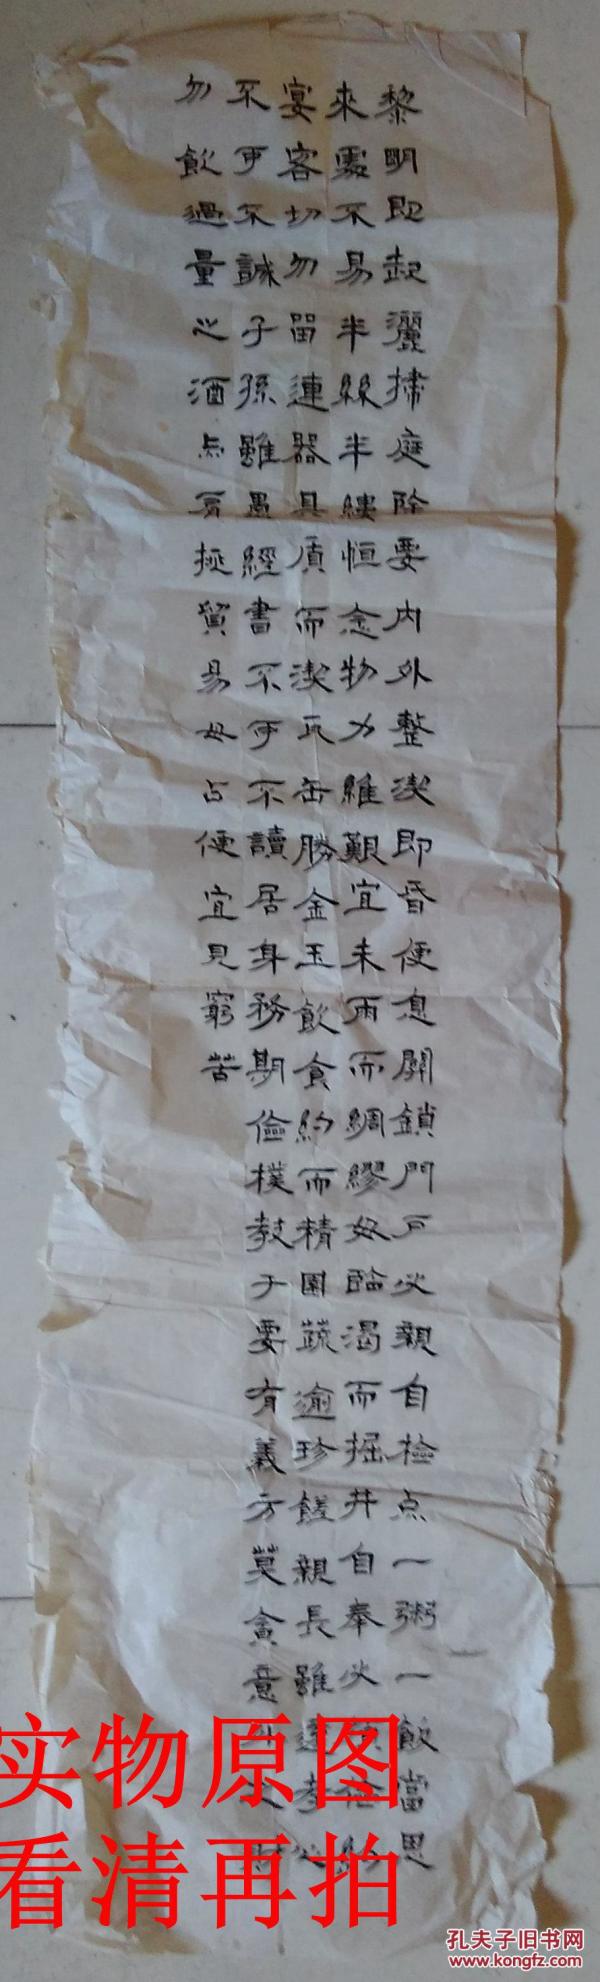 黎明即起灑掃庭除要内外整潔即昏便息關鎖門戶必親自檢点一粥一飯當思
來處不易半絲半縷恒念物力維艱宜未雨而綢繆奴臨渴而掘井自奉必須儉約
宴客切勿留連器具質而潔瓦缶勝金玉飲食約而精園蔬逾珍饈親長雖遠孝心
不可不誠子孫雖愚經書不可不讀居身務期儉樸教子要有義方莫貪意外之財
勿飲過量之酒与肩挑貿易毋占便宜見窮苦
实物原图
看清再拍
孔夫子旧书网
www.kongfz.com